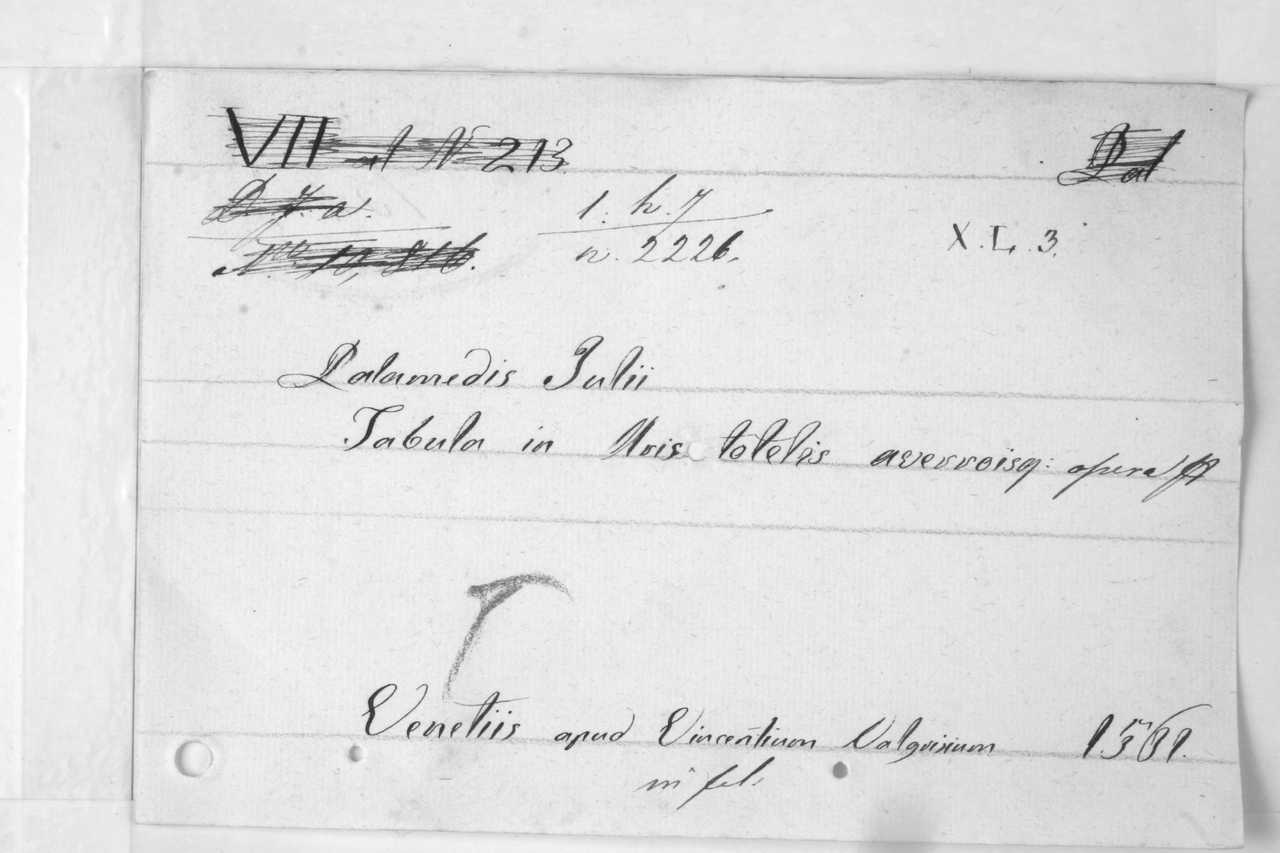 VII N 213 Pal
D. 7. a. 1. h. 7 X. L. 3.
No 10,816. n. 2226.
Palamedis Julii
Tabula in Aristotelis averroisq: opera
Venetiis apud Vincentium Valgrisium 1561.
in fol.